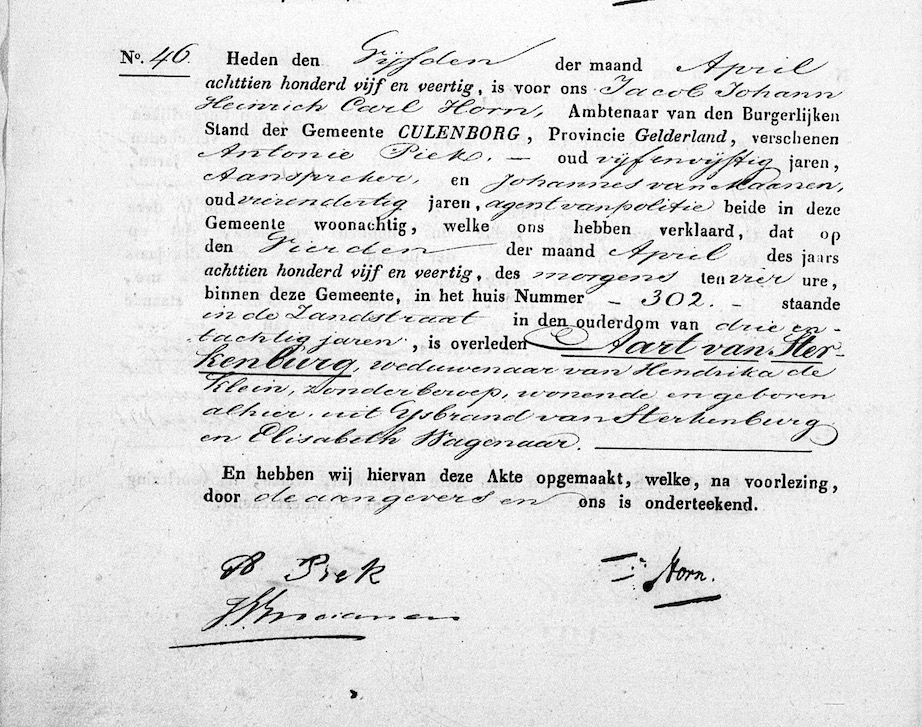 No. 46. Heden den Vijfden der maand April
achttien honderd vijf en veertig, is voor ons Jacob Johann
Heinrich Carl Horn, Ambtenaar van den Burgerlijken
Stand der Gemeente CULENBORG, Provincie Gelderland, verschenen
Antonie Piek. — oud vijfenvijftig jaren,
Aanspreker, en Johannes van Maanen,
oud vierendertig jaren, agent van politie beide in deze
Gemeente woonachtig, welke ons hebben verklaard, dat op
den Vierden der maand April des jaars
achttien honderd vijf en veertig, des morgens ten vier ure,
binnen deze Gemeente, in het huis Nummer — 302. — staande
in de Zandstraat in den ouderdom van drie en-
tachtig jaren, is overleden Aart van Ster-
kenburg, weduwenaar van Hendrika de
Klein, zonder beroep, wonende en geboren
alhier, uit Ysbrand van Sterkenburg
en Elisabeth Wagenaar.
En hebben wij hiervan deze Akte opgemaakt, welke, na voorlezing,
door de aangevers en ons is onderteekend.
A Piek Horn.